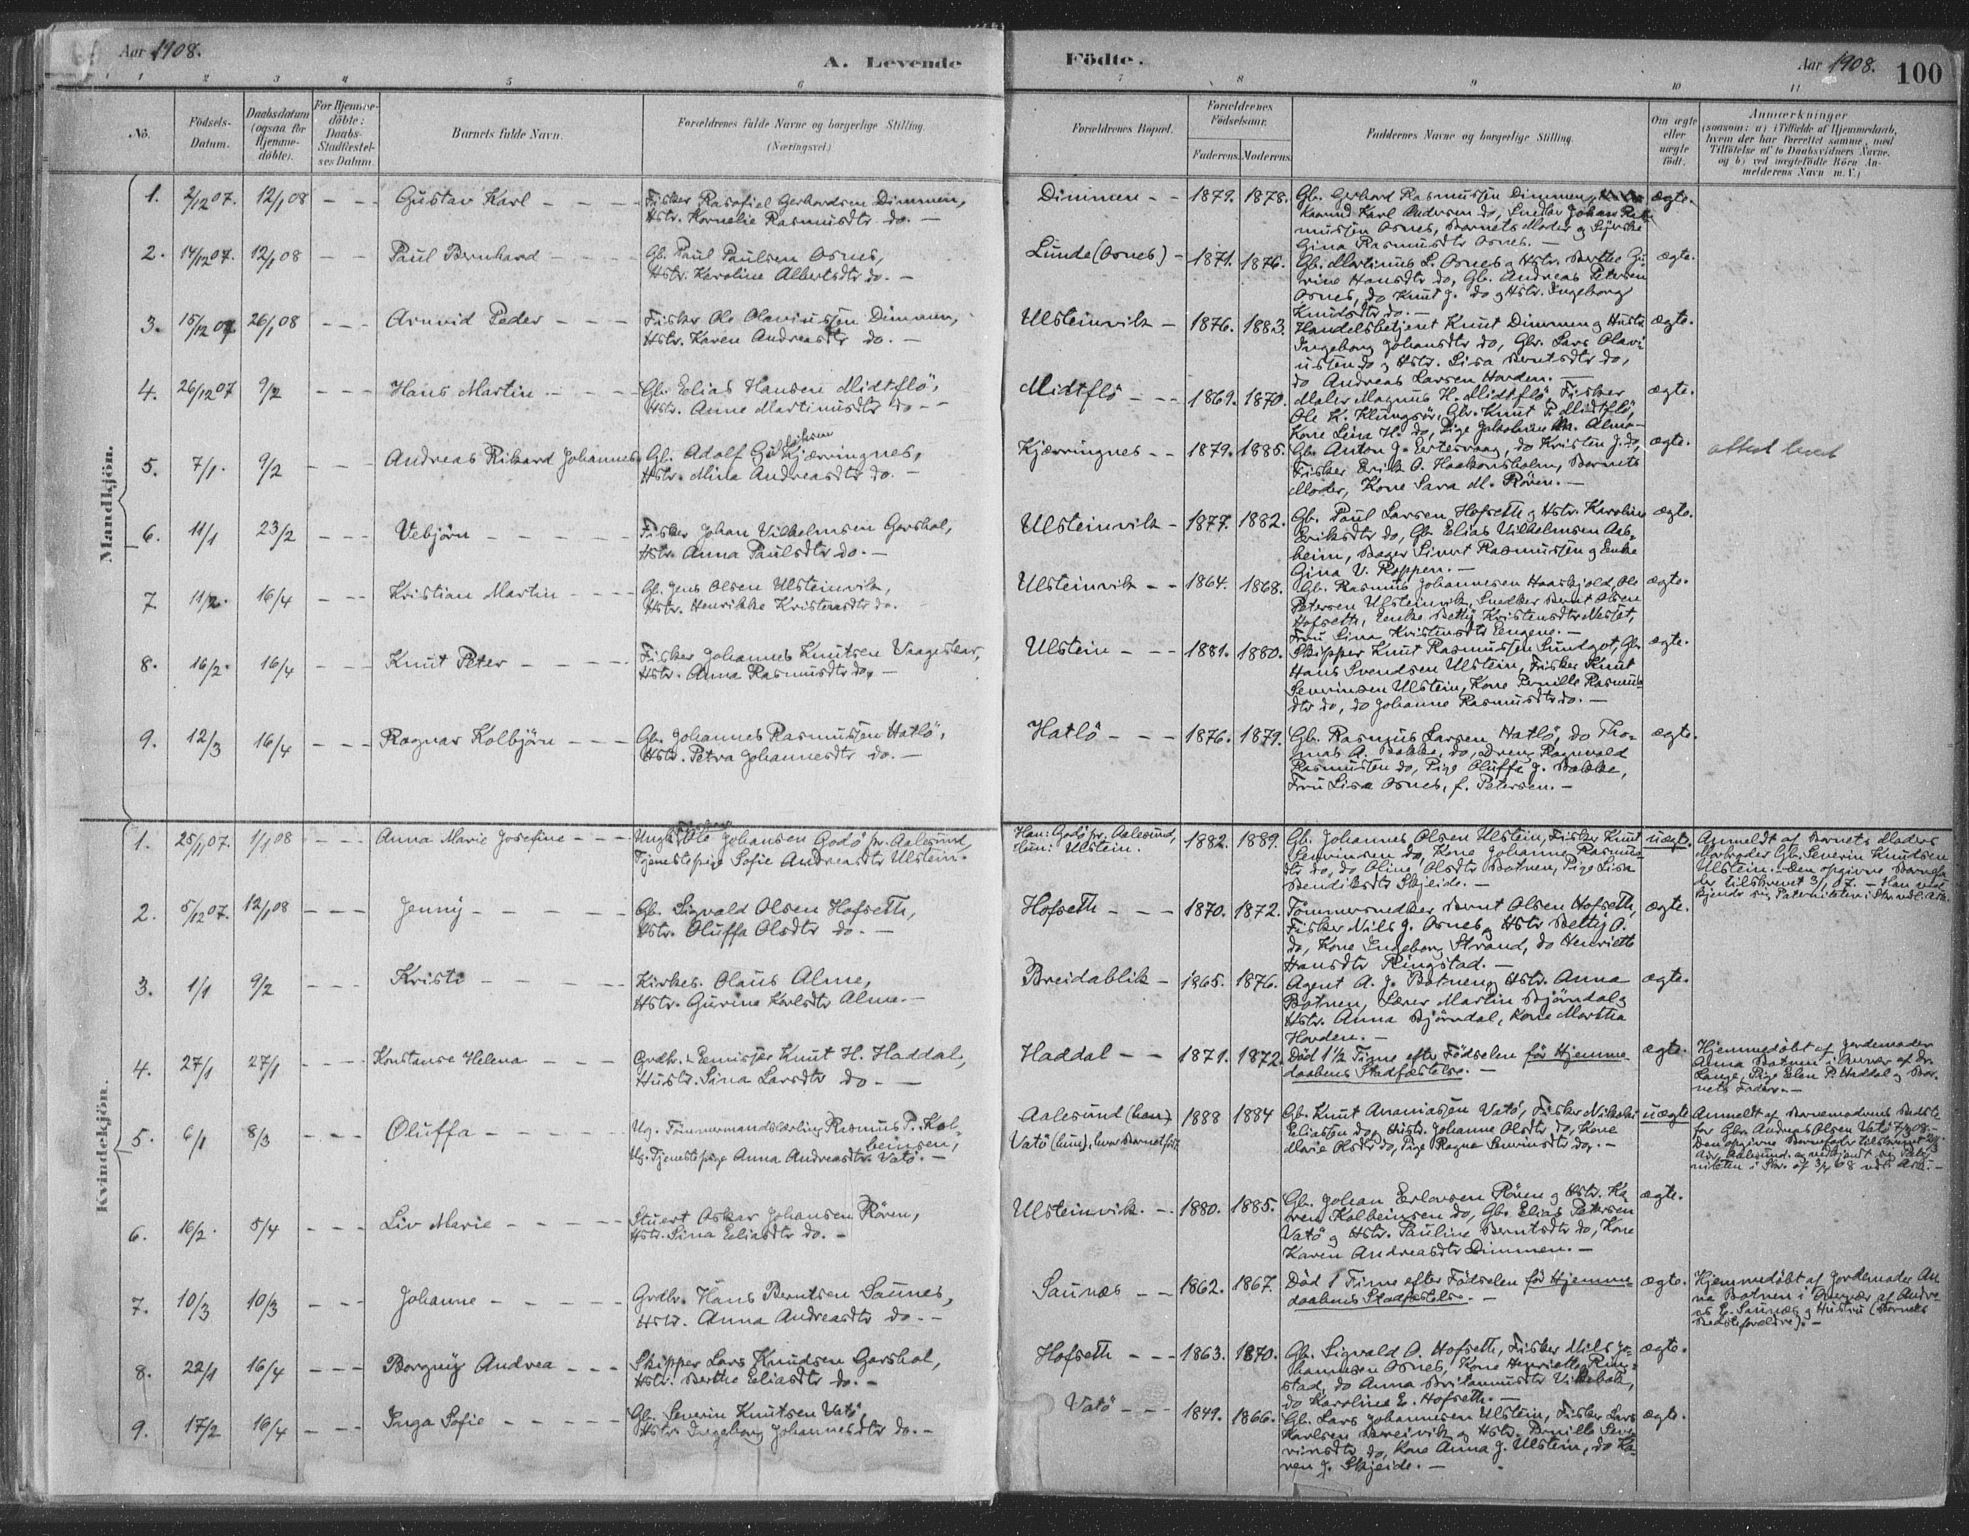 Aar 1908.
A. Levende
Födte.
Aar 1908.
100
1 2 3 4 5 6 7 8 9 10 11
No.
Födsels-
Datum.
Daabsdatum
(ogsaa for
Hjemme-
döbte).
For Hjemme-
döbte:
Daabs-
Stadfæstel-
ses Datum.
Barnets fulde Navn.
Forældrenes fulde Navne og borgerlige Stilling.
(Næringsvei.)
Forældrenes Bopæl.
Forældrenes
Födselsaar.
Faderens. Moderens.
Faddernes Navne og borgerlige Stilling.
Om ægte
eller
uægte
födt.
Anmærkninger
(saasom: a) i Tilfælde af Hjemmedaab,
hvem der har forrettet samme, med
Tilföielse af to Daabsvidners Navne,
og b) ved uægtefödte Börn An-
melderens Navn m. V.)
Mandkjön.
1. 2/12 07. 12/1 08 Gustav Karl
Fisker Gerhardsen Dimmen,
Hstr. Kornelie Rasmusdtr do.
Dimmen 1879. 1878.
Gb. Gerhard Rasmussen Dimmen,
Karl Andersen do, Johan Ras-
mussen Osnes, Barnets Moder og
Gina Rasmusdtr Osnes.
ægte.
2. 14/12 07. 12/1 08 Paul Bernhard
Gb. Paul Paulsen Osnes,
Hstr. Karoline Albertsdtr do.
Lunde (Osnes) 1871. 1876.
Gb. Martinus L. Osnes og Hstr. Berthe Gu-
rine Hansdtr do, Gb. Andreas Petersen
Osnes, do Knut J. do og Hstr. Ingeborg
Knudsdtr do.
ægte.
3. 15/12 07 26/1 08 Arnvid Peder
Fisker Ole Olaviussen Dimmen,
Hstr. Karen Andreasdtr do.
Ulsteinvik 1876. 1883.
Handelsbetjent Knut Dimmen og Hustr.
Ingeborg Johansdtr do, Gbr. Lars Olavi-
ussen do og Hstr. Lisa Berntsdtr do,
do Andreas Larsen Harden.
ægte.
4. 26/12 07 9/2 Hans Martin
Gb. Elias Hansen Midtflö,
Hstr. Anne Martinusdtr do
Midtflö 1869. 1870.
Maler Magnus H. Midtflö, Fisker
Ole K. Klungsör, Gbr. Knut P. Midtflö,
Kone Lina H. do, Pige
ægte.
5. 7/1. 9/2 Andreas Rikard Johannes
Gb. Adolf Kjærringnes,
Hstr. Mina Andreasdtr do.
Kjærringnes 1879. 1885.
Gb. Anton J. Eertesvaag, do Kristen J. do,
Fisker Erik O. Haakonsholm, Barnets
Moder, Kone Sara M. Rören.
ægte.
6. 11/1 23/2 Vebjörn
Fisker Johan Vilhelmsen Garshol,
Hstr. Anna Paulsdtr do.
Ulsteinvik 1877. 1882.
Gb. Paul Larsen Hofseth og Hstr. Karoline
Eriksdtr do, Gb. Elias Vilhelmsen Aas-
heim, Bager Sivert Rasmussen og Enke
Gina V. Roppen.
ægte.
7 11/2. 16/4 Kristian Martin
Gb. Jens Olsen Ulsteinvik,
Hstr. Henrikke Kristensdtr do.
Ulsteinvik 1864. 1868.
Gb. Rasmus Johannesen Haaskjold, Ole
Petersen Ulsteinvik, Snedker Bernt Olsen
Hofseth, Enke Betty Kristensdtr
Fru Lina Kristensdtr Eengene.
ægte.
8. 16/2. 16/4 Knut Peter
Fisker Johannes Knutsen Vaageskar,
Hstr. Anna Rasmusdtr do.
Ulstein 1881. 1880.
Skipper Knut Rasmussen Sundgot, Gb.
Hans Svendsen Ulstein, Fisker Knut
Severinsen Ulstein, Kone Pernille Rasmus-
dtr do, do Johanne Rasmusdtr do.
ægte.
9. 12/3 16/4 Ragnar Kolbjörn
Gb. Johannes Rasmussen Hatlö,
Hstr. Petra Johannesdtr do.
Hatlö 1876. 1879.
Gb. Rasmus Larsen Hatlö, do Tho-
mas A. Bakke, do, Dreng Ragnvald
Rasmussen do, Pige Oluffa J. Bakke,
Fru Lisa Osnes, f. Petersen.
ægte.
Kvindekjön.
1. 25/1 07. 1/1 08 Anna Marie Josefine
Ungk. Ole Johansen Godö pr. Aalesund,
Tjenestepige Sofie Andreasdtr Ulstein.
Han: Godö pr. Aalesund,
Hun: Ulstein.
1882. 1889.
Gb. Johannes Olsen Ulstein, Fisker Knut
Severinsen do, Kone Johanne Rasmus-
dtr do, do Oline Olsdtr Botnen, Pige Lisa
Bendiksdtr Skjeide.
uægte.
Anmeldt af Barnets Moders
Morbroder Gb. Severin Knudsen
Ulstein. Den opgivne Barnefa-
der tilskrevet 3/1 07. Han ved-
kjendt sig Paterniteten i
2. 5/12 07. 12/1 08 Jenny
Gb. Sigvald Olsen Hofseth,
Hstr. Oluffa Olsdtr do.
Hofseth 1870. 1872.
Tömmersnedker Bernt Olsen Hofseth,
Fisker Nils J. Osnes og Hstr. Betty O.
do, Kone Ingeborg Strand, do Henriette
Hansdtr Ringstad.
ægte.
3. 1/1 9/2 Kristi
Kirkes. Olaus Alme,
Hstr. Gurine Karlsdtr Alme.
Breidablik 1865. 1876.
Agent A. J. Botnen og Hstr. Anna
Botnen, Lærer Martin Björndal og
Hstr. Anna Björndal, Kone Martha
Harden.
ægte.
4. 27/1 27/1 Konstanse Helena
Grdbr. & Emisjær Knut H. Haddal,
Hustr. Sina Larsdtr do
Haddal 1871. 1872.
Död 1 1/2 Time efter Födselen för Hjemme-
daabens Stadfæstelse.
ægte.
Hjemmedöbt af Jordemoder
Anna Botnen i Nærvær af Dr.
Lange, Pige Elen P. Haddal og Bar-
nets Fader.
5. 6/1 8/3 Oluffa
Ug. Tömmermandslærling Rasmus P. Kol-
beinsen,
Ug. Tjenestepige Anna Andreasdtr Vatö.
Aalesund (han)
Vatö (hun), hvor Barnet föt.
1888 1884
Gb. Knut Ananiassen Vatö, Fisker Nikolai
Eliassen do, Hustr. Johanne Olsdtr do, Kone
Marie Olsdtr do, Pige Ragna Severinsdtr do.
uægte
Anmeldt af Barnemoderens Bedste-
far Gbr. Andreas Olsen Vatö 7/3 08.
Den opgivne Barnefader tilskrevet
Aalesund, og vedkjendt sig Pater-
niteten i Skr. af
6. 16/2. 5/4 Liv Marie
Stuert Oskar Johansen Rören,
Hstr. Sina Eliasdtr do.
Ulsteinvik. 1880. 1885.
Gb. Johan Erlovsen Rören og Hstr. Ka-
ren Kolbeinsen do, Gb. Elias Petersen
Vatö og Hstr. Pauline Berntsdtr do, Kone
Karen Andreasdtr Dimmen.
ægte.
7. 10/3 10/3 Johanne
Grdbr. Hans Berntsen Saunes,
Hstr. Anna Andreasdtr do.
Saunæs 1862. 1867.
Död 1 Time efter Födselen för Hjemme-
daabens Stadfæstelse.
ægte.
Hjemmedöbt af Jordemoder An-
na Botnen i Nærvær af Andre-
as E. Saunæs og Hustru (Barnets
Bedsteforældre).
8. 22/1 16/4 Borgny Andrea
Skipper Lars Knudsen Garshol,
Hstr. Berthe Eliasdtr do.
Hofseth 1863. 1870.
Gb. Sigvald O. Hofseth, Fisker Nils Jo-
hannesen Osnes, Kone Henriette Ring-
stad, do Anna Vikebak,
do Karoline E. Hofseth.
ægte.
9. 17/2 16/4 Inga Sofie
Gb. Severin Knutsen Vatö,
Hstr. Ingeborg Johannesdtr do.
Vatö 1849. 1866.
Gb. Lars Johannesen Ulstein, Fisker Lars
Karlsen Breivik og Hstr. Pernille Seve-
rinsdtr do, Kone Anna J. Ulstein, do Ka-
ren J. Skjeide.
ægte.